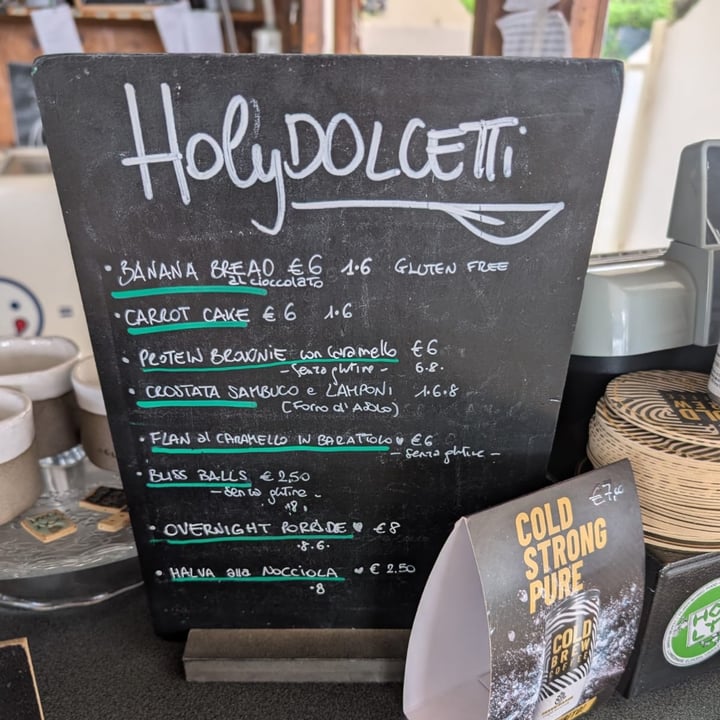 HOLY DOLCETTI
• BANANA BREAD €6 1•6 GLUTEN FREE
al cioccolato
• CARROT CAKE €6 1•6
• PROTEIN BROWNIE con caramello €6
- senza glutine - 6•8•
• CROSTATA SAMBUCO e LAMPONI 1•6•8
(Forno d'Adolo)
• FLAN al CARAMELLO IN BARATTOLO ♥ €6
- senza glutine -
• BLISS BALLS €2,50
- senza glutine -
•18•
• OVERNIGHT PORRIDE ♥ €8
•8•6•
• HALVA alla NOCCIOLA ♥ €2.50
•8
COLD
STRONG
PURE
COLD
BREW
COLD
HOLY